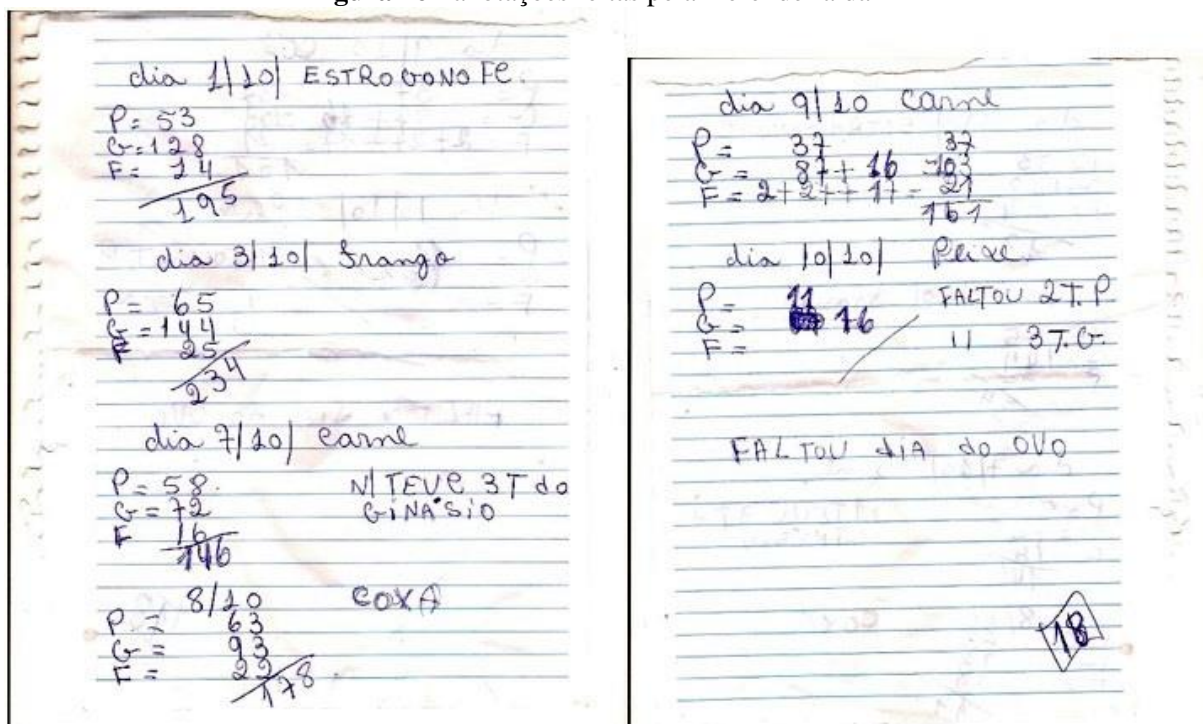 dia 1/10/ ESTROGONOFE.
P= 53
G=128
F= 14
195
dia 3/10/ Frango
P= 65
G=144
F 25
234
dia 7/10/ carne
P=58. N/TEVE 3T do
G=72 GiNÁSiO
F 16
146
8/10 COXA
P = 63
G = 93
F = 22
178
dia 9/10 carne
P= 37 37
G= 87+16 =103
F=2+2++17= 21
161
dia 10/10/ Peixe
P= 11 FALTOU 2T.P
G= 16 11 3T.G.
F=
FALTOU diA do OVO
18